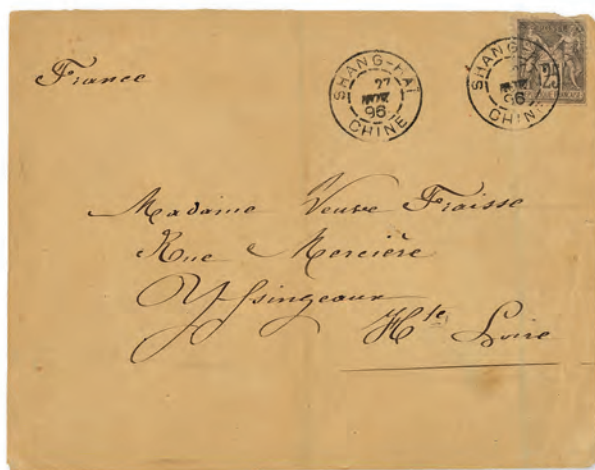 France
SHANG-HAÏ
27
NOV.
96
CHINE
SHANG-
27
96
CHINE
25
Madame Veuve Fraisse
Rue Mercière
Yssingeaux
Hte Loire